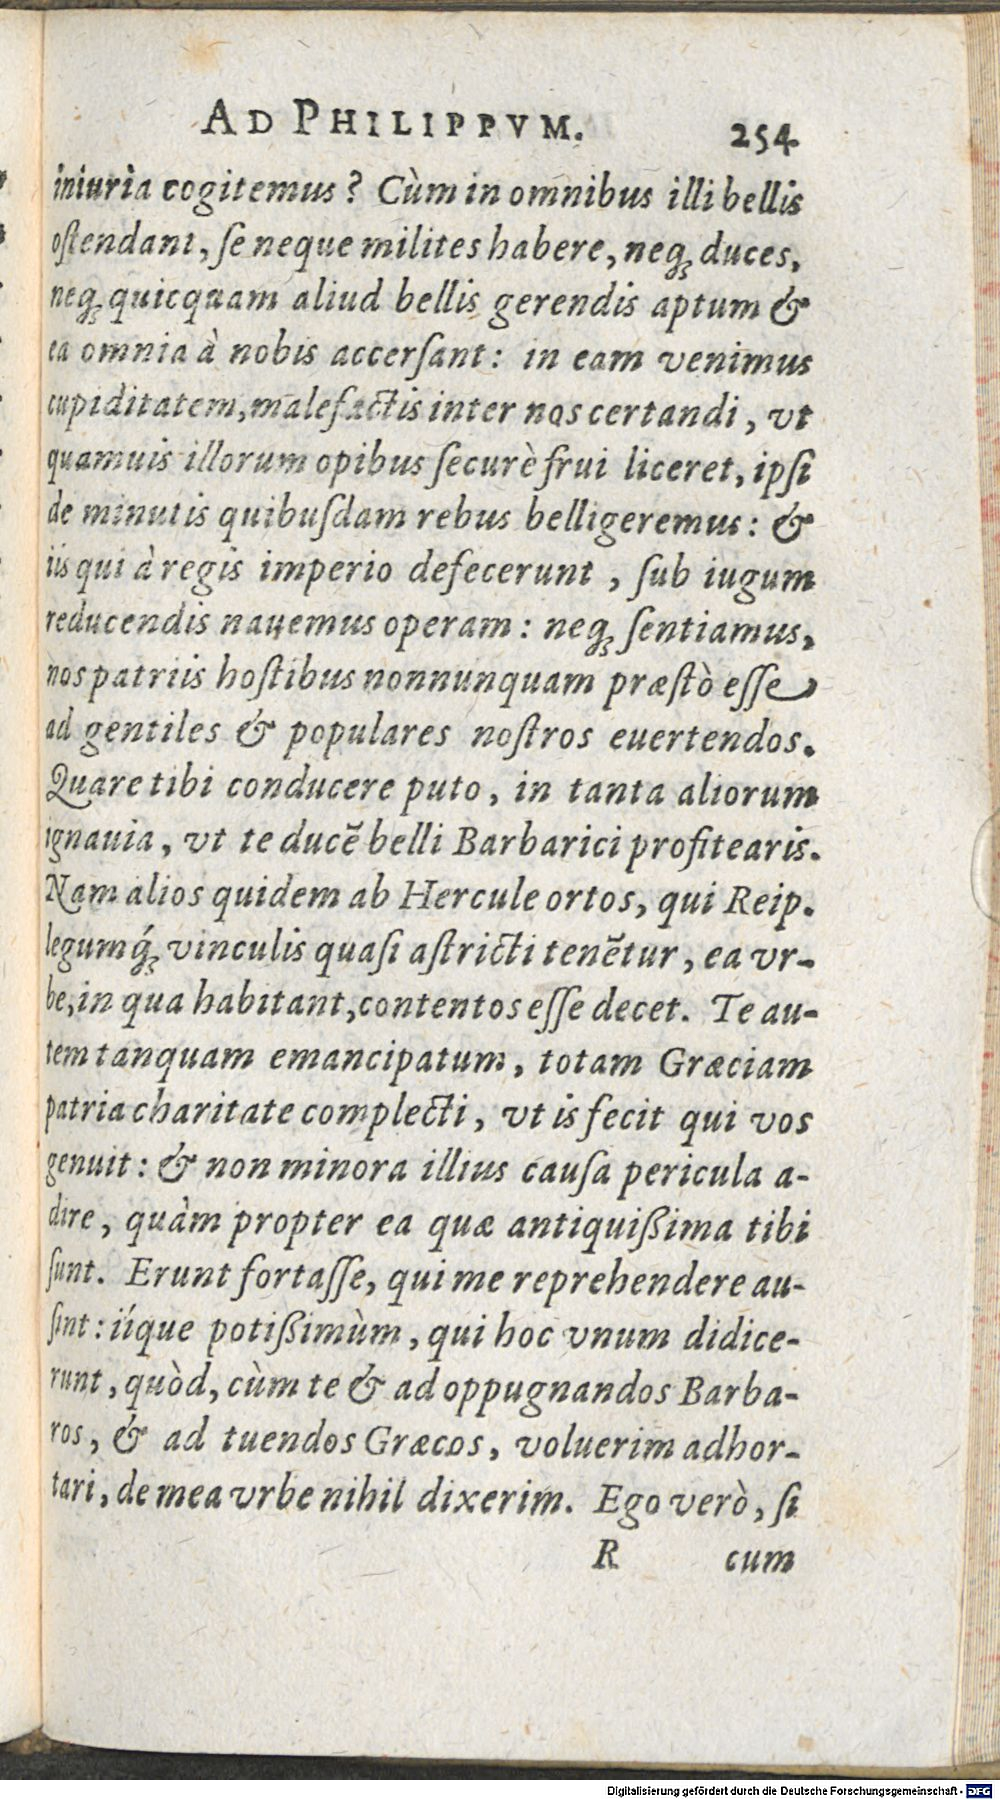 AD PHILIPPVM. 254
iniuria cogitemus? Cùm in omnibus illi bellis
oſtendant, ſe neque milites habere, neq; duces,
neq; quicquam aliud bellis gerendis aptum &
ea omnia à nobis accerſant: in eam venimus
cupiditatem, malefactis inter nos certandi, vt
quamuis illorum opibus ſecurè frui liceret, ipſi
de minutis quibuſdam rebus belligeremus: &
iis qui à regis imperio defecerunt, ſub iugum
reducendis nauemus operam: neq; ſentiamus,
nos patriis hoſtibus nonnunquam præſtò eſſe
ad gentiles & populares noſtros euertendos.
Quare tibi conducere puto, in tanta aliorum
ignauia, vt te ducẽ belli Barbarici profitearis.
Nam alios quidem ab Hercule ortos, qui Reip.
legumq́; vinculis quaſi aſtricti tenẽtur, ea vr-
be, in qua habitant, contentos eſſe decet. Te au-
tem tanquam emancipatum, totam Græciam
patria charitate complecti, vt is fecit qui vos
genuit: & non minora illius cauſa pericula a-
dire, quàm propter ea quæ antiquißima tibi
ſunt. Erunt fortaſſe, qui me reprehendere au-
ſint: iíque potißimùm, qui hoc vnum didice-
runt, quòd, cùm te & ad oppugnandos Barba-
ros, & ad tuendos Græcos, voluerim adhor-
tari, de mea vrbe nihil dixerim. Ego verò, ſi
R cum
Digitalisierung gefördert durch die Deutsche Forschungsgemeinschaft - DFG